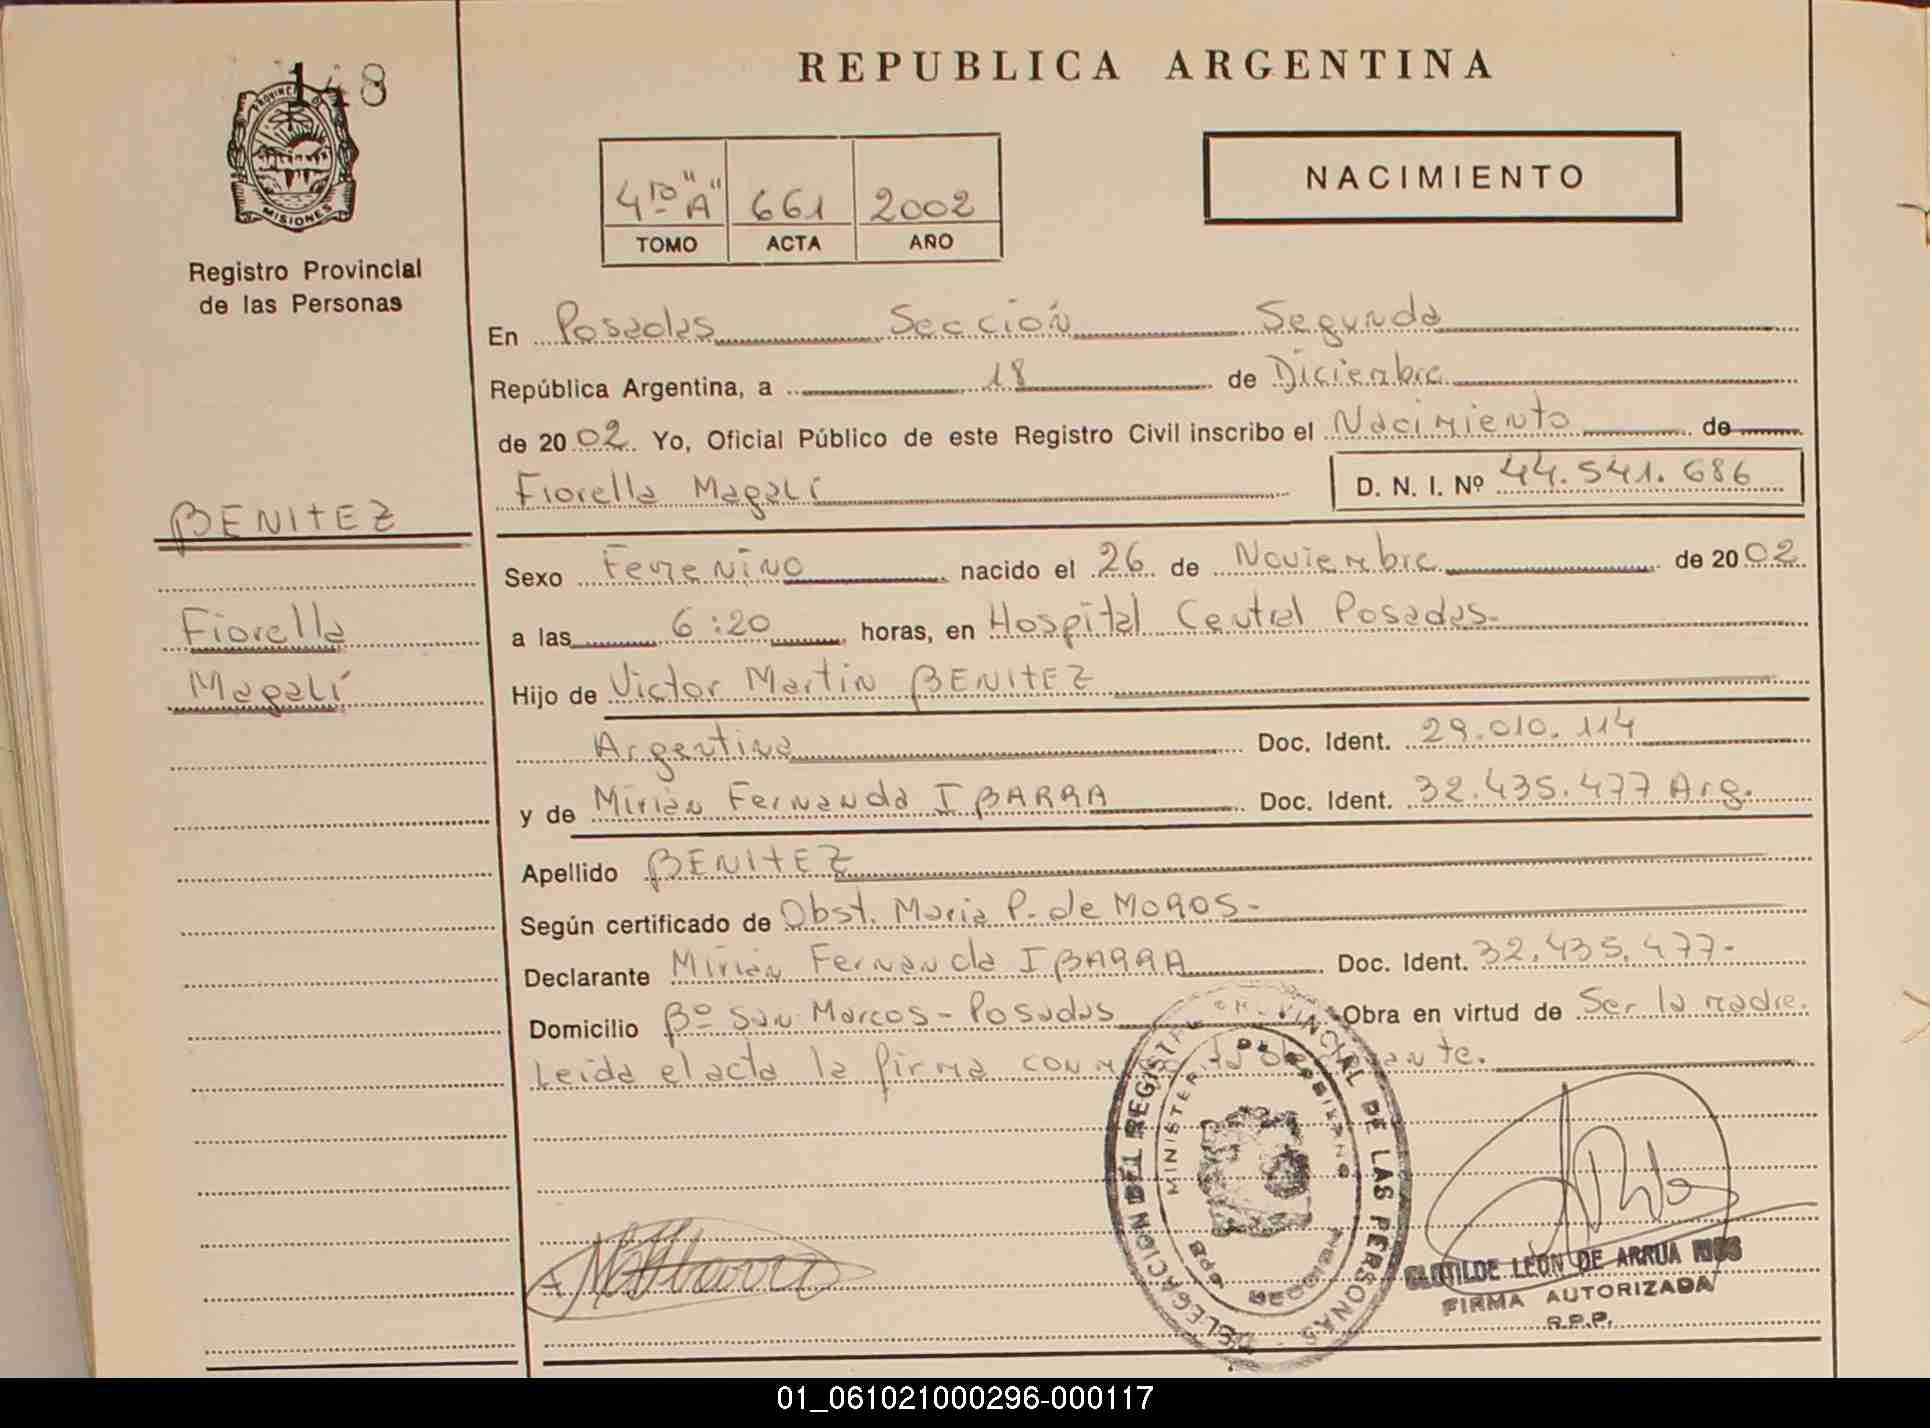 148
PROVINCIA DE
MISIONES
Registro Provincial
de las Personas
BENITEZ
Fiorella
Magalí
REPUBLICA ARGENTINA
4to "A" 661 2002
TOMO ACTA AÑO
NACIMIENTO
En Posadas Sección Segunda
República Argentina, a 18 de Diciembre
de 2002 Yo, Oficial Público de este Registro Civil inscribo el Nacimiento de
Fiorella Magalí D. N. I. Nº 44.541.686
Sexo Femenino nacido el 26 de Noviembre de 2002
a las 6:20 horas, en Hospital Central Posadas-
Hijo de Victor Martin BENITEZ
Argentina Doc. Ident. 29.010.114
y de Mirian Fernanda IBARRA Doc. Ident. 32.435.477 Arg.
Apellido BENITEZ
Según certificado de Obst. Maria P. de MOROS-
Declarante Mirian Fernanda IBARRA Doc. Ident. 32.435.477-
Domicilio Bº San Marcos - Posadas Obra en virtud de Ser la madre.
Leida el acta la firma conmigo la declarante.
DELEGACION DEL REGISTRO PROVINCIAL DE LAS PERSONAS
MINISTERIO DE GOBIERNO
CLOTILDE LEON DE ARRUA RIOS
FIRMA AUTORIZADA
R.P.P.
01_061021000296-000117